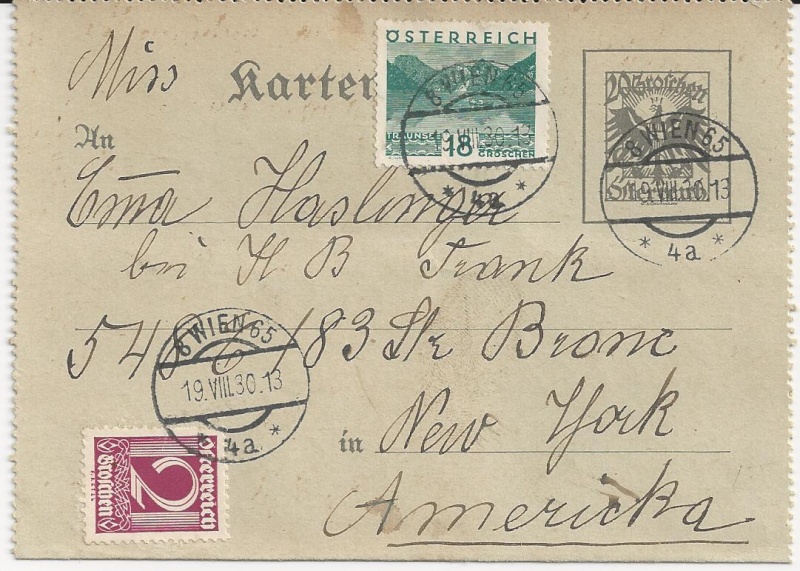 Miss
Karten
ÖSTERREICH
TRAUNSEE
18
GROSCHEN
20 Groschen
Österreich
8 WIEN 65
19.VIII.30.13
* 4a *
8 WIEN 65
19.VIII.30.13
* 4a *
An
Ema Haslinger
bei H B Frank
54 183 Str Bronc
6 WIEN 65
19.VIII.30.13
* 4a *
in New York
Americka
2
Groschen
Österreich